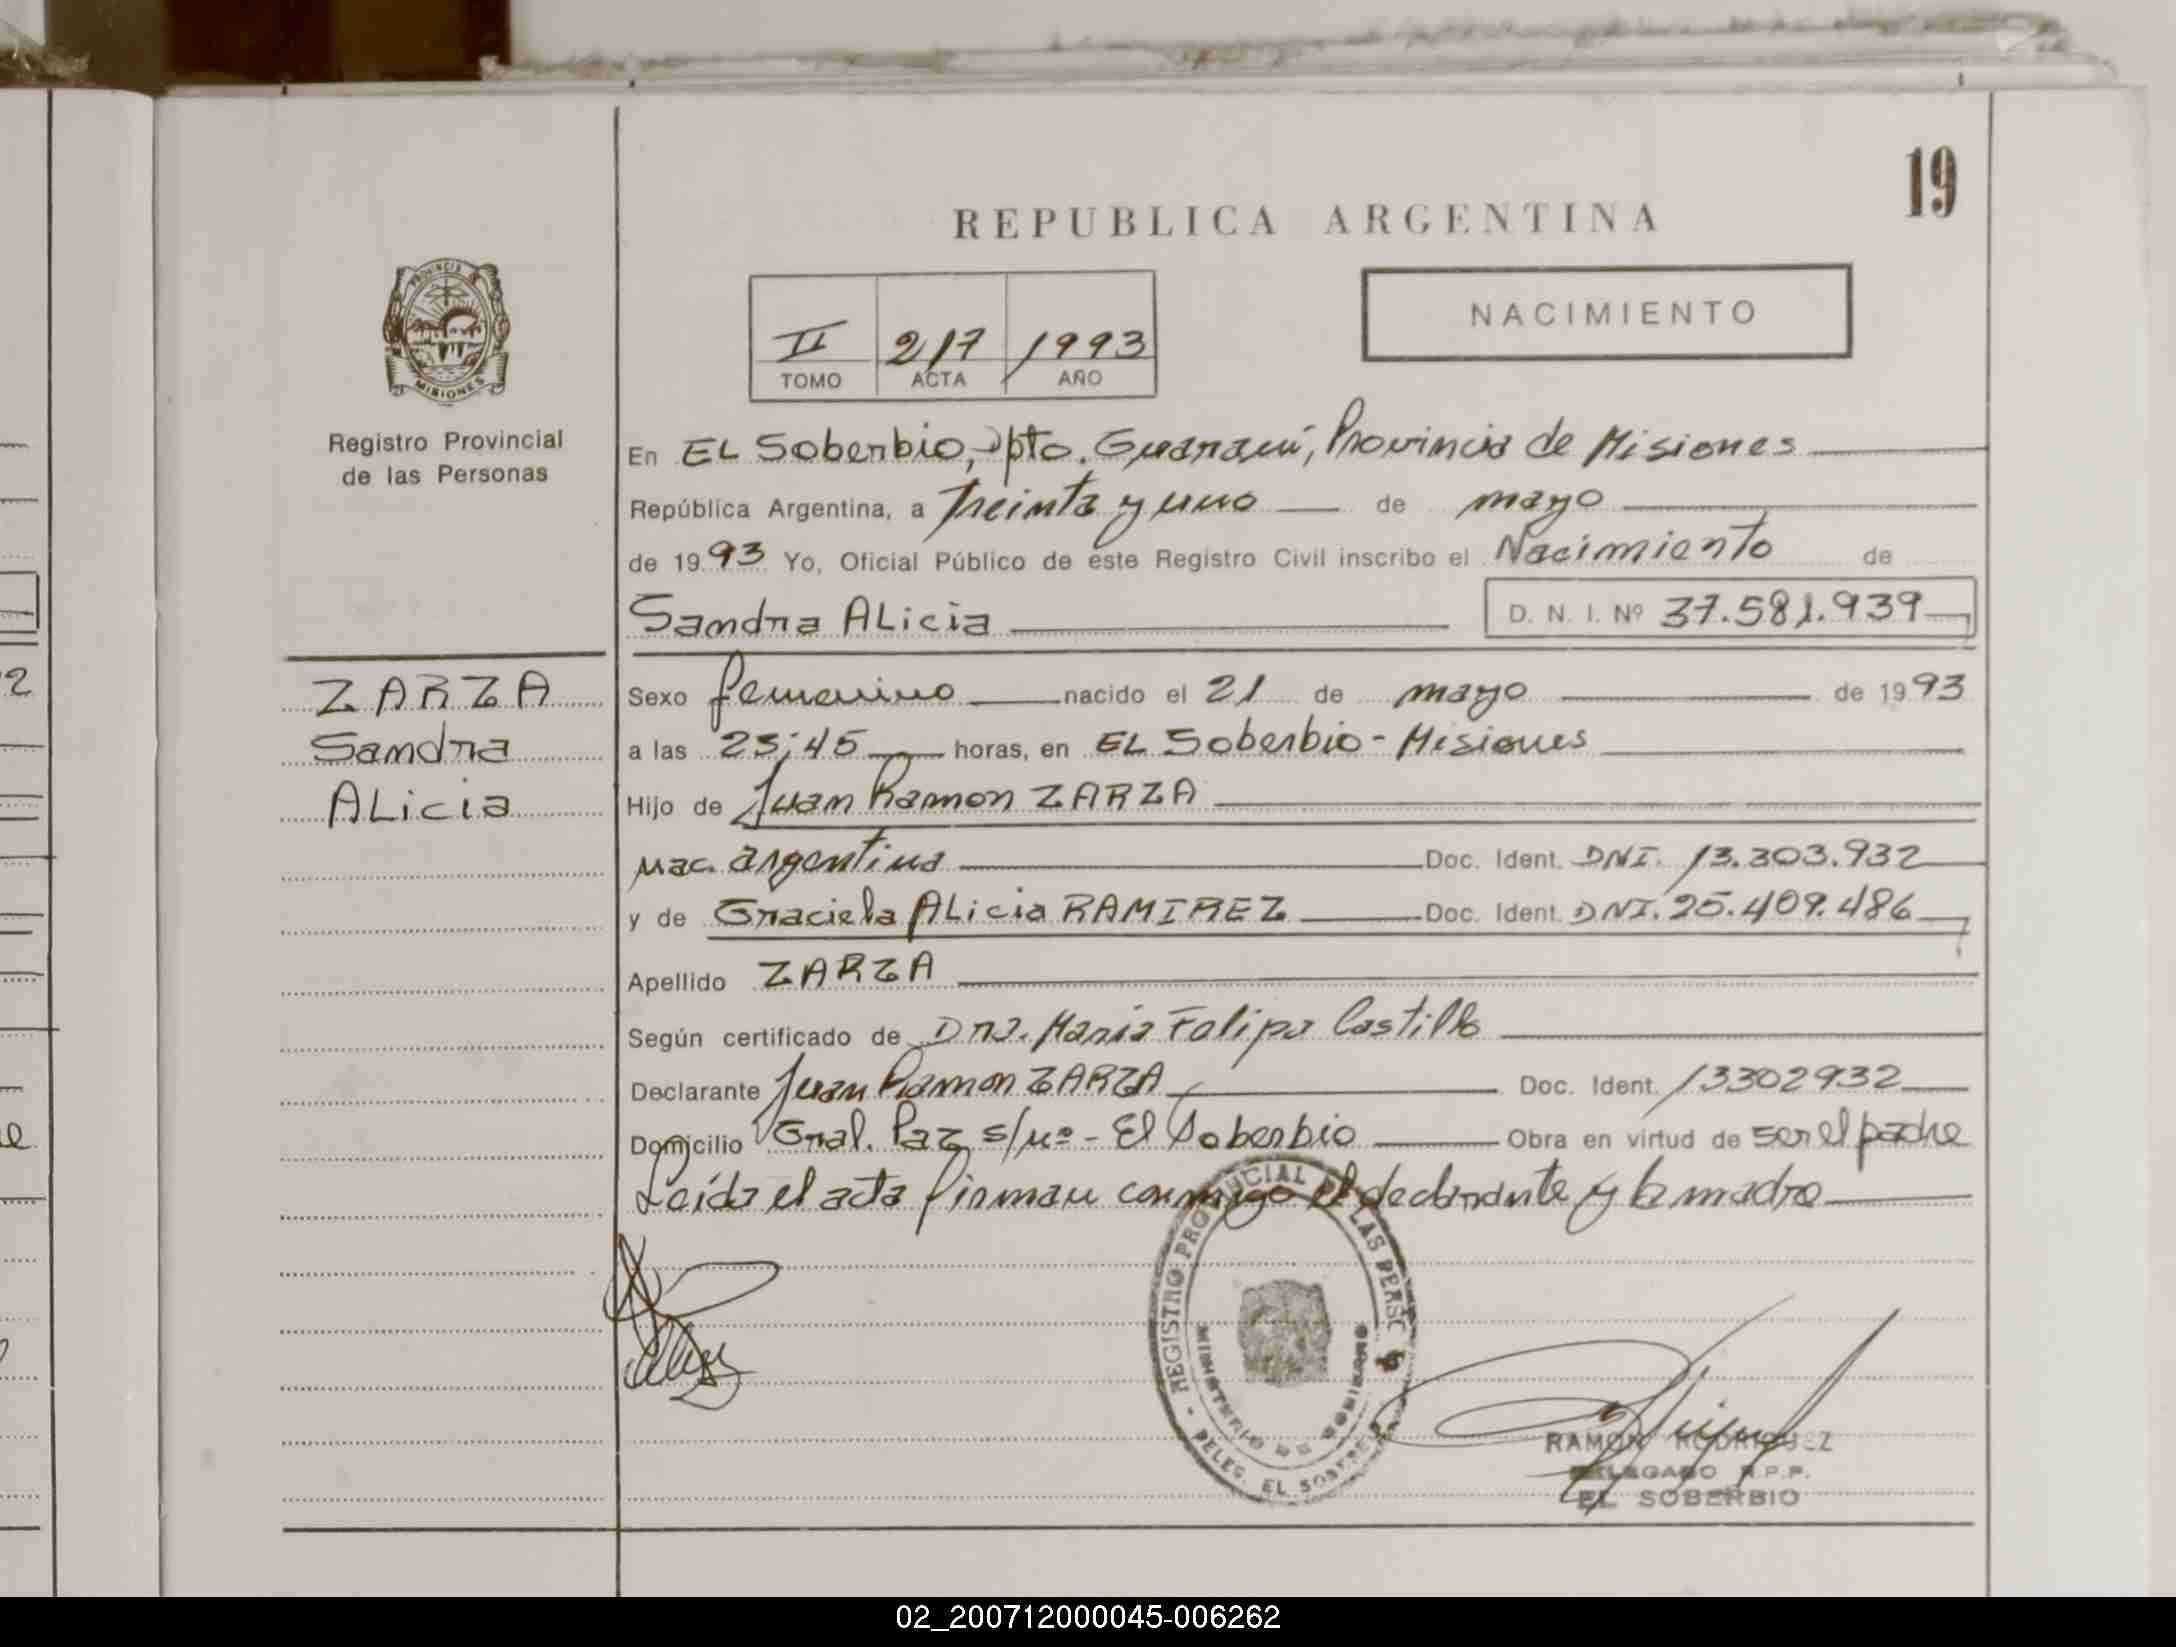 19
REPUBLICA ARGENTINA
PROVINCIA DE
MISIONES
Registro Provincial
de las Personas
II 217 1993
TOMO ACTA AÑO
NACIMIENTO
En EL Soberbio, Dpto. Guaraní, Provincia de Misiones
República Argentina, a Treinta y uno de mayo
de 1993 Yo, Oficial Público de este Registro Civil inscribo el Nacimiento de
Sandra ALicia D. N. I. Nº 37.581.939
ZARZA
Sandra
ALicia
Sexo femenino nacido el 21 de mayo de 1993
a las 23;45 horas, en EL Soberbio - Misiones
Hijo de Juan Ramon ZARZA
nac. argentina Doc. Ident. DNI. 13.303.932
y de Graciela ALicia RAMIREZ Doc. Ident. DNI. 25.409.486
Apellido ZARZA
Según certificado de Dra. Maria Felipa Castillo
Declarante Juan Ramon ZARZA Doc. Ident. 13302932
Domicilio Gral. Paz s/nº - El Soberbio Obra en virtud de ser el padre
Leída el acta firman conmigo el declarante y la madre
REGISTRO PROVINCIAL DE LAS PERSO
MINISTERIO DE GOBIERNO
DELEG. EL SOBERBIO
RAMON RODRIGUEZ
DELEGADO R.P.P.
EL SOBERBIO
02_200712000045-006262